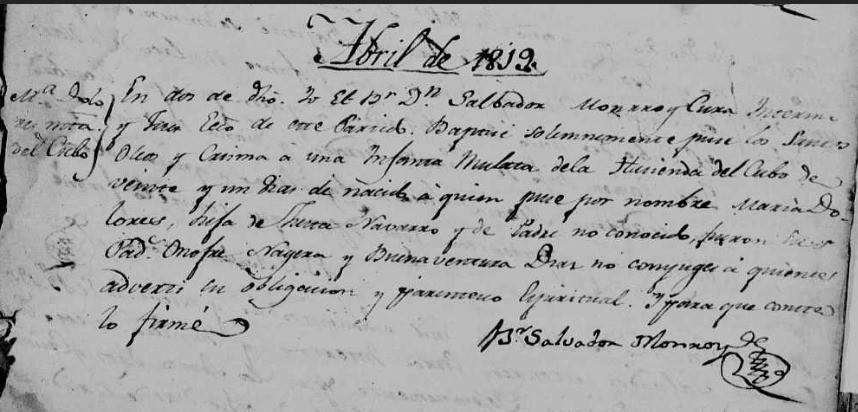 Abril de 1812.
Mª Dolo
res mta
del Cubo
En dos de dho. Yo El Br. Dn. Salbador Monrroy Cura Interin
y Juez Ecco. de este Partido. Baptisé solemnemente puse los Santos
Oleos y Crisma á una Infanta Mulata dela Hacienda del Cubo de
veinte y un dias de nacida á quien puse por nombre Maria Do-
lores, hija de Navarro y de Padre no conocido, fueron sus
Pads. Onofre Nagera y Buenaventura Dias no conjuges á quienes
adverti su obligacion y parentesco Espiritual. Y para que conste
lo firmé
Br. Salvador Monroy